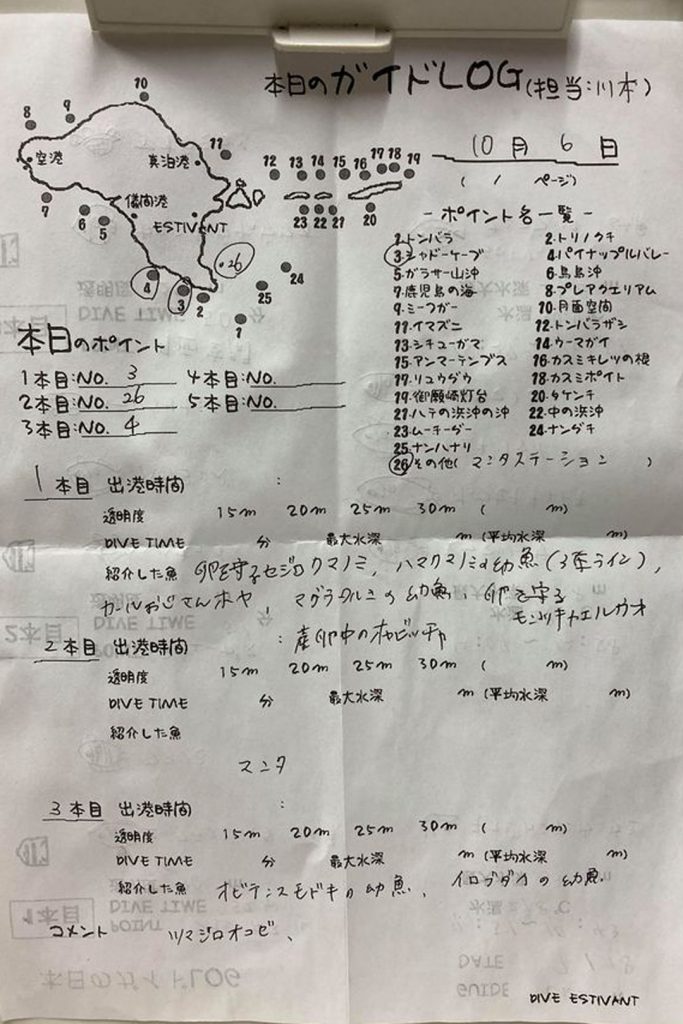 本日のガイドLOG(担当:川本)
10月 6日
( / ページ)
10
9
8
11
空港
真泊港
12 13 14 15 16 17 18 19
儀間港
7
6
5
ESTIVANT
23 22 21 20
26
24
4
3
2
25
1
- ポイント名一覧 -
1.トンバラ 2.トリノクチ
3.シャドーケーブ 4.パイナップルバレー
5.ガラサー山沖 6.鳥島沖
7.鹿児島の海 8.プレアクエリアム
9.ミーフガー 10.月面空間
11.イマズニ 12.トンバラザシ
13.シチューガマ 14.ウーマガイ
15.アンマーテンプス 16.カスミキレツの根
17.リュウグウ 18.カスミポイント
19.御願崎灯台 20.タケンチ
21.ハテの浜沖の沖 22.中の浜沖
23.ムーチーグー 24.ナングチ
25.ナンハナリ
26.その他(マンタステーション )
本日のポイント
1本目:NO. 3 4本目:NO.
2本目:NO. 26 5本目:NO.
3本目:NO. 4
1本目 出港時間 :
透明度 15m 20m 25m 30m ( m)
DIVE TIME 分 最大水深 m (平均水深 m)
紹介した魚 卵を守るセジロクマノミ、ハマクマノミの幼魚(3本ライン)、
カールおじさんホヤ、マダラタルミの幼魚、卵を守る
モンツキカエルウオ
2本目 出港時間 : 産卵中の
透明度 15m 20m 25m 30m ( m)
DIVE TIME 分 最大水深 m (平均水深 m)
紹介した魚
マンタ
3本目 出港時間 :
透明度 15m 20m 25m 30m ( m)
DIVE TIME 分 最大水深 m (平均水深 m)
紹介した魚 オビテンスモドキの幼魚、イロブダイの幼魚
コメント ツマジロオコゼ、
DIVE ESTIVANT